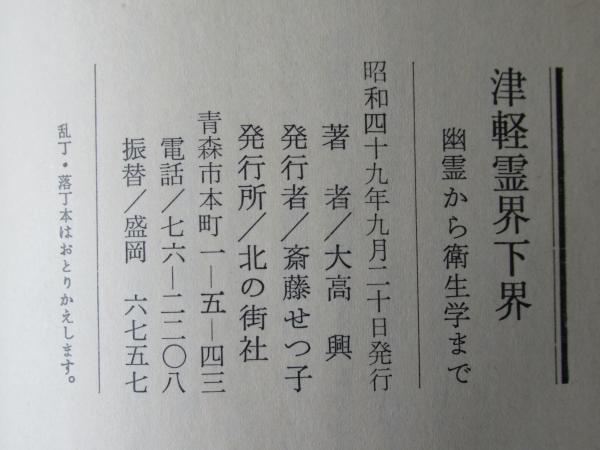 津軽霊界下界
幽霊から衛生学まで
昭和四十九年九月二十日発行
著者/大高 興
発行者/斎藤せつ子
発行所/北の街社
青森市本町一―五―四三
電話/七六―二二〇八
振替/盛岡 六七五七
乱丁・落丁本はおとりかえします。